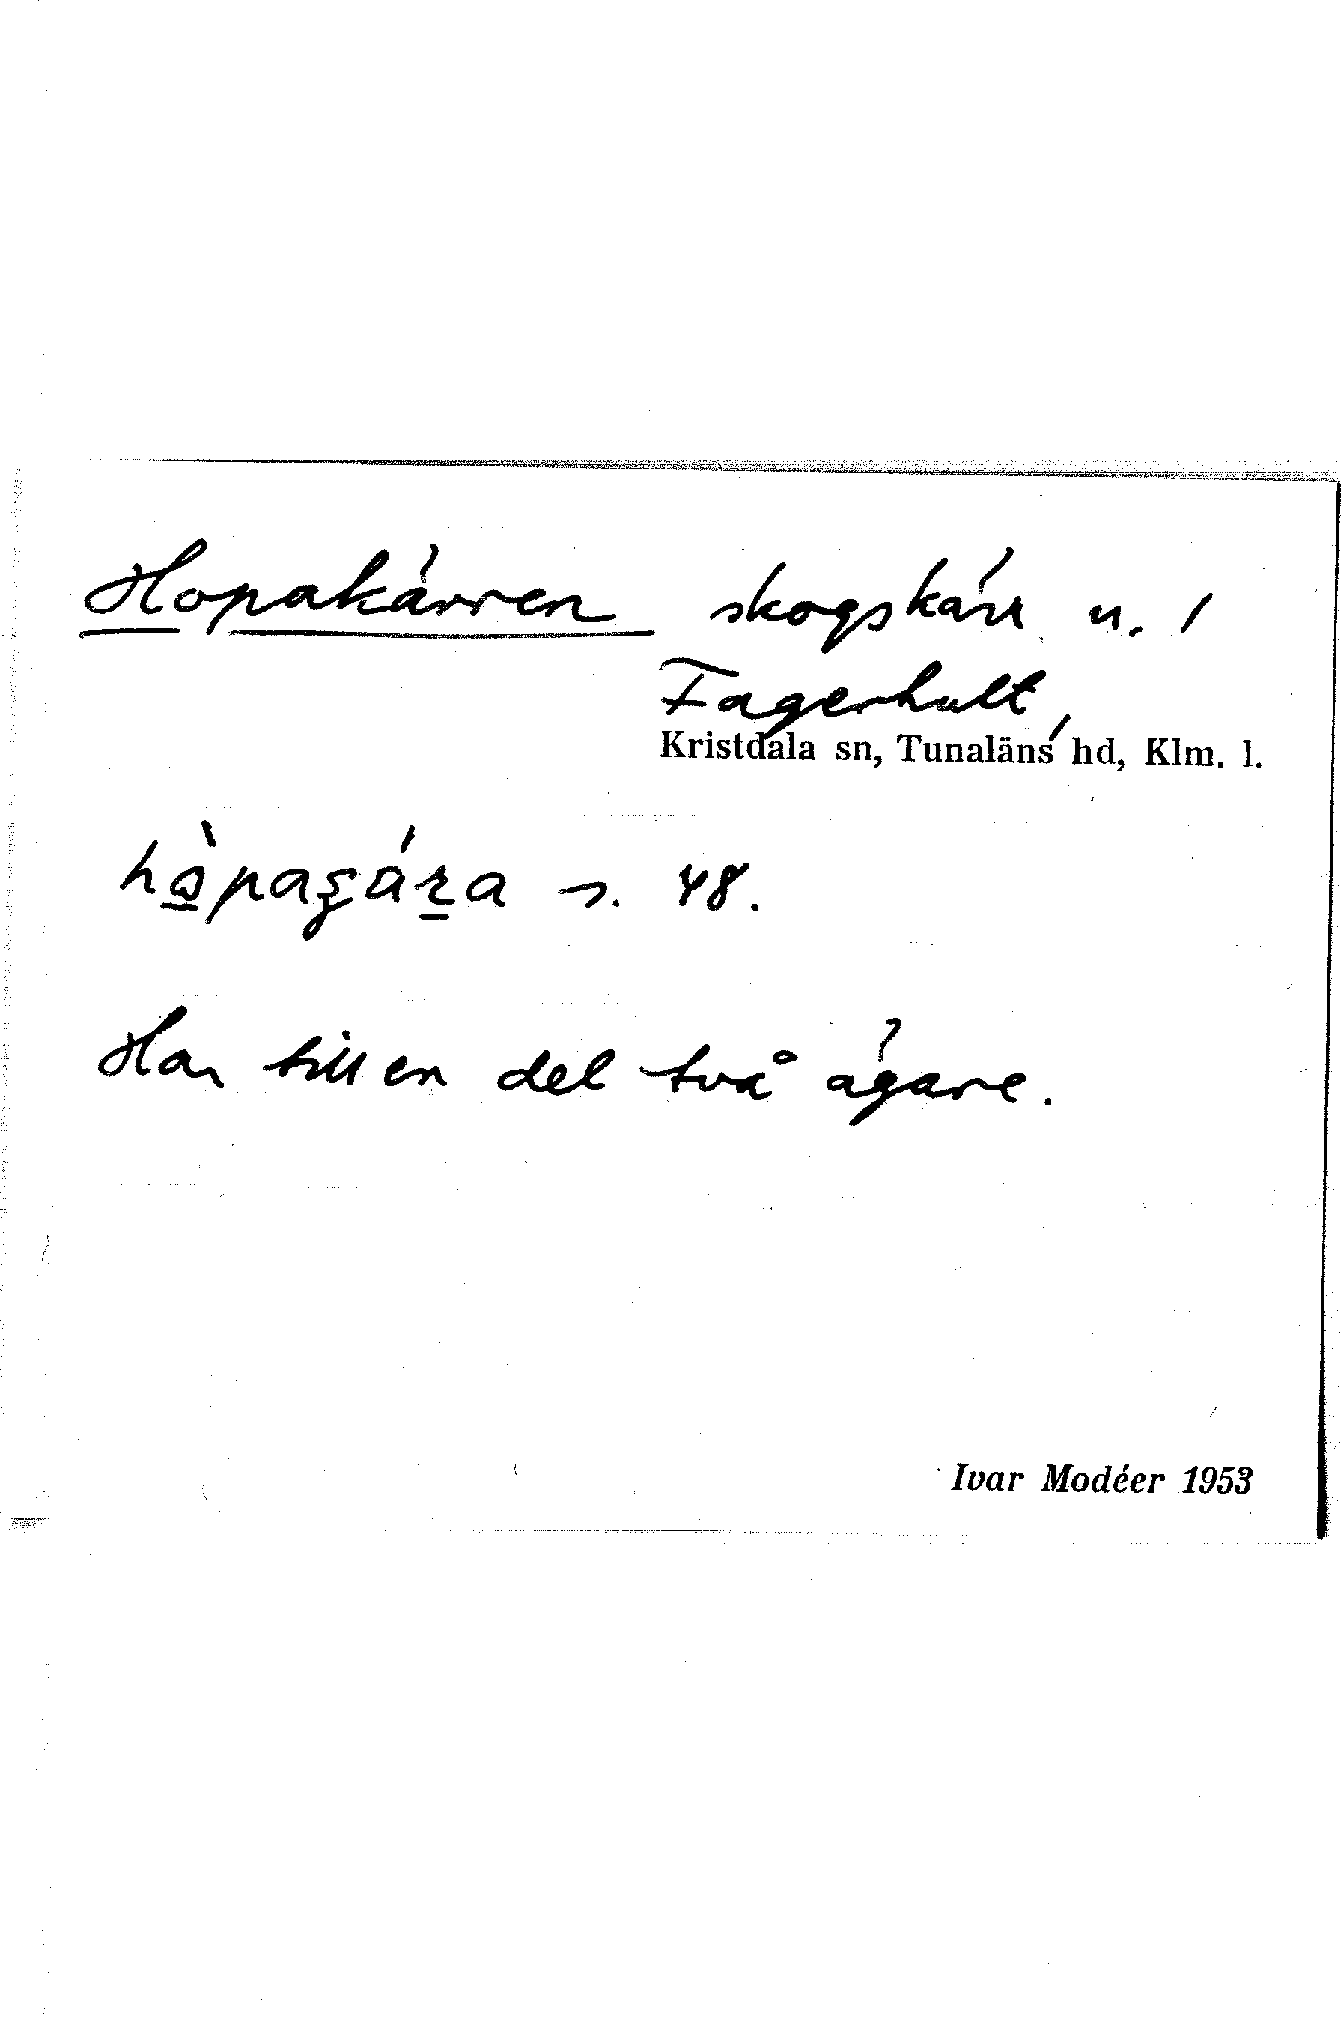 Hopakärren skogskärr n. 1
Fagerhult,
Kristdala sn, Tunaläns hd, Klm. l.
s. 48.
Har till en del två ägare.
Ivar Modéer 1953